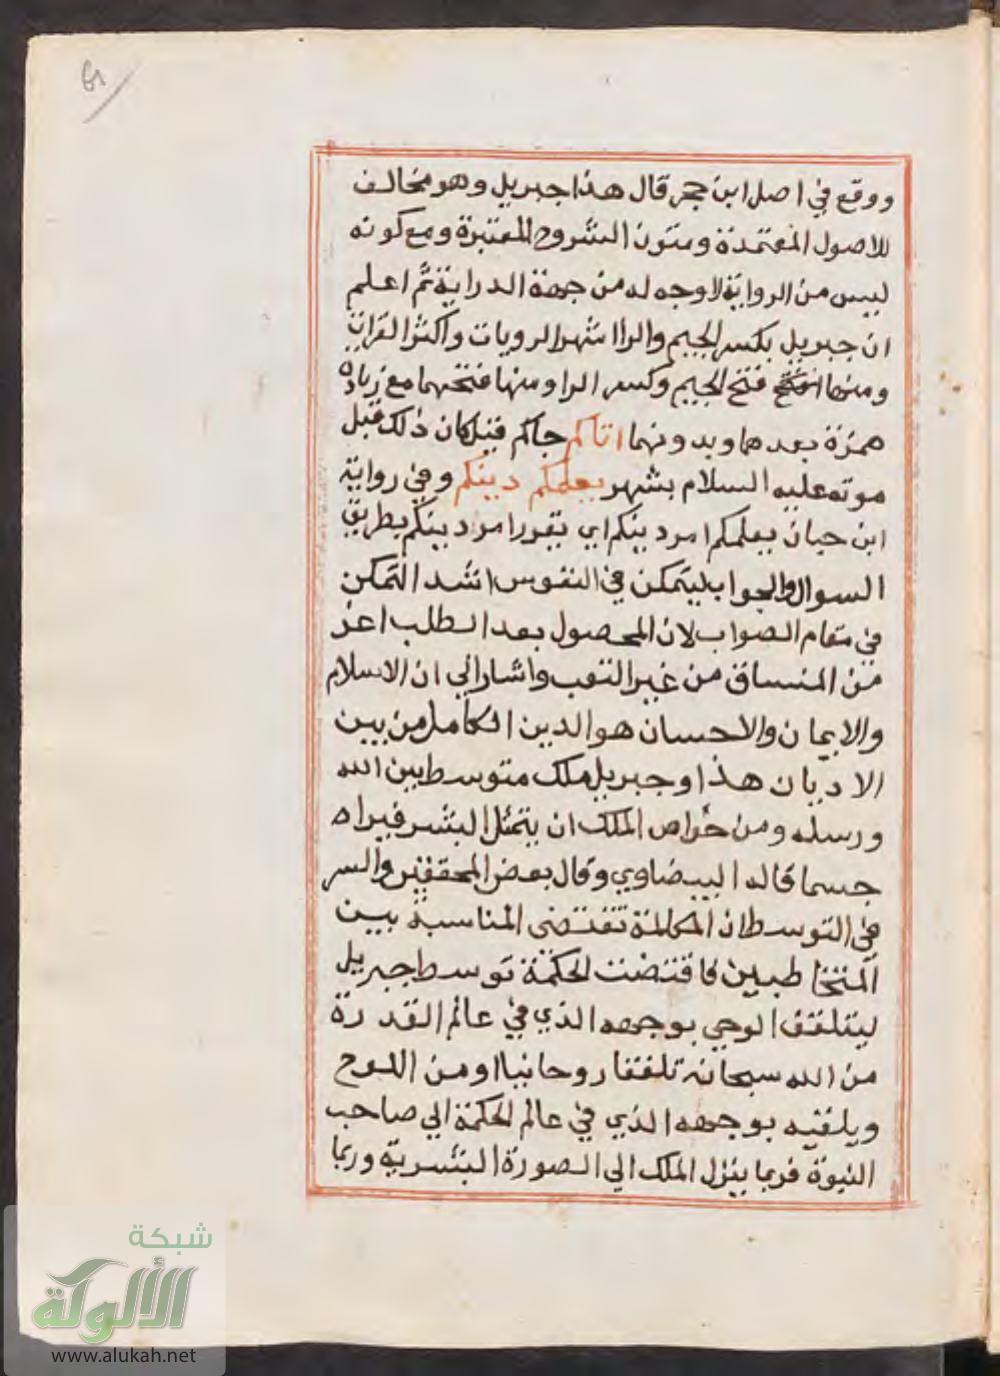 ووقع في اصل ابن حجر قال هذا جبريل وهو مخالف
للاصول المعتمدة ومتون الشروح المعتبرة ومع كونه
ليس من الرواية لا وجه له من جهة الدراية ثم اعلم
ان جبريل بكسر الجيم والرا اشهر الرويات واكثر القرات
ومنها فتح الجيم وكسر الرا ومنها فتحهما مع زيادة
همزة بعدها وبدونها اتاكم جاكم قيل كان ذلك قبل
موته عليه السلام بشهر يعلمكم دينكم وفي رواية
ابن حبان يعلمكم امر دينكم اي يقرر امر دينكم بطريق
السوال والجواب ليتمكن في النفوس اشد التمكن
في مقام الصواب لان المحصول بعد الطلب اعز
من المنساق من غير التعب واشار الي ان الاسلام
والايمان والاحسان هو الدين الكامل من بين
الاديان هذا وجبريل ملك متوسط بين الله
ورسله ومن خواص الملك ان يتمثل البشر فيراه
جسما قاله البيضاوي وقال بعض المحققين والسر
في التوسط ان المكالمة تقتضي المناسبة بين
المتخاطبين فاقتضت الحكمة توسط جبريل
ليتلقف الوحي بوجهه الذي في عالم القدرة
من الله سبحانه تلقفا روحانيا او من اللوح
ويلقيه بوجهه الذي في عالم الحكمة الي صاحب
النبوة فربما ينزل الملك الي الصورة البشرية وربما
شبكة
الألوكة
www.alukah.net